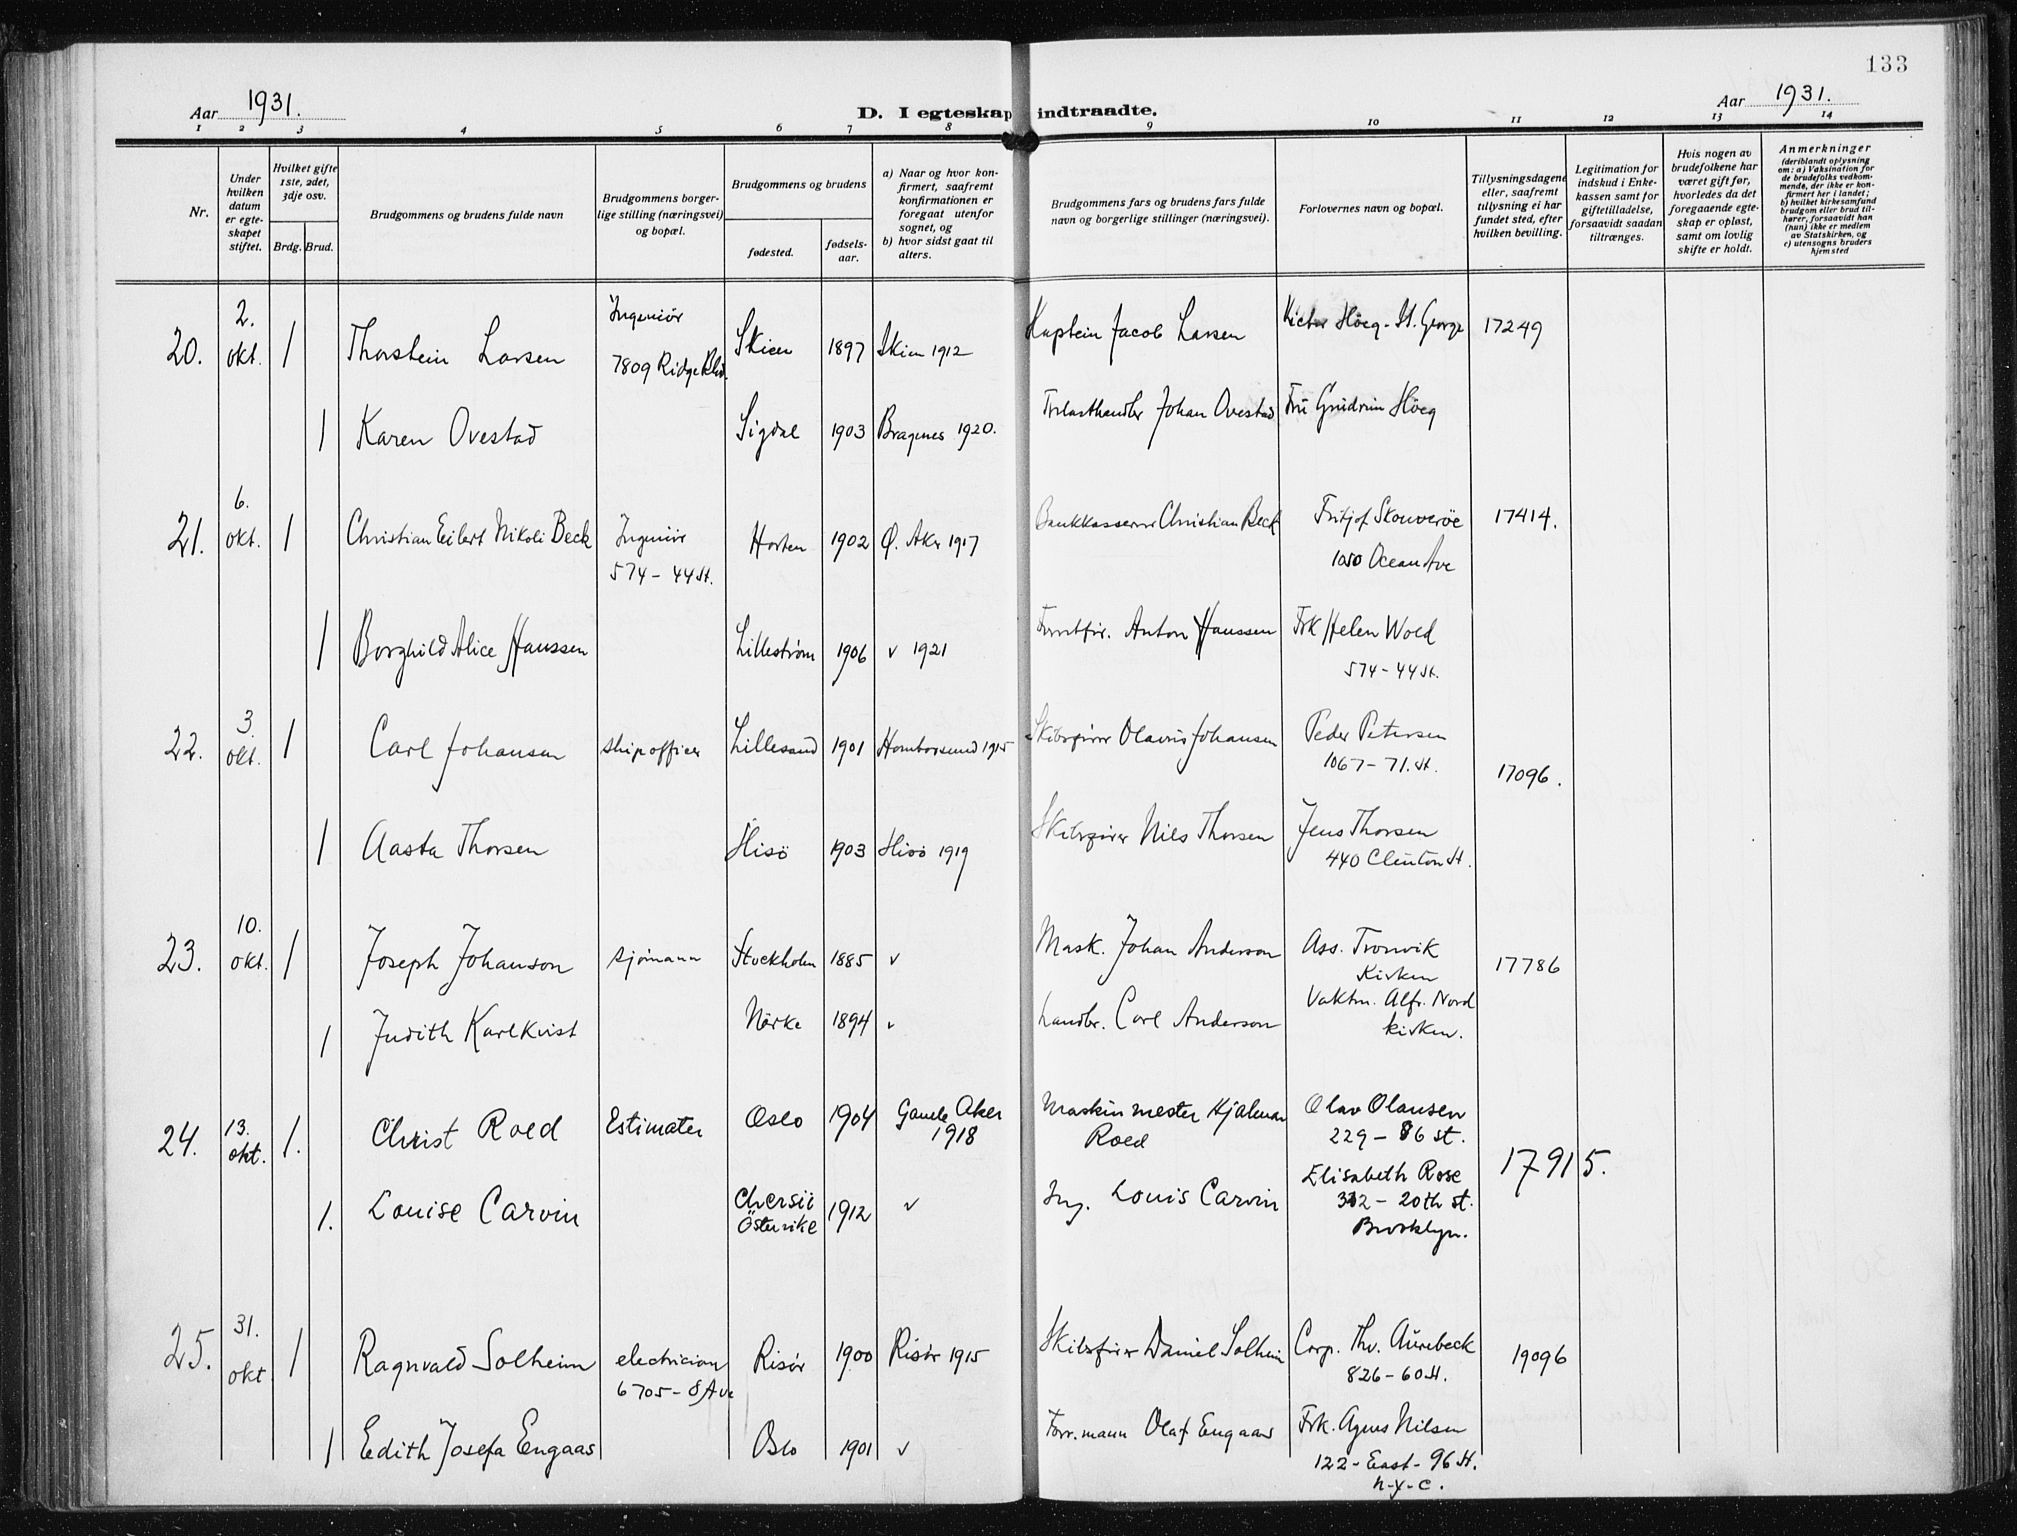 133
Aar 1931.
D. I egteskap indtraadte.
Aar 1931.
1 2 3 4 5 6 7 8 9 10 11 12 13 14
Nr.
Under hvilken datum er egteskapet stiftet.
Hvilket gifte 1ste, 2det, 3dje osv.
Brdg. Brud.
Brudgommens og brudens fulde navn
Brudgommens borgerlige stilling (næringsvei) og bopæl.
Brudgommens og brudens
fødested.
fødselsaar.
a) Naar og hvor konfirmert, saafremt konfirmationen er foregaat utenfor sognet, og
b) hvor sidst gaat til alters.
Brudgommens fars og brudens fars fulde navn og borgerlige stillinger (næringsvei).
Forlovernes navn og bopæl.
Tillysningsdagene eller, saafremt tillysning ei har fundet sted, efter hvilken bevilling.
Legitimation for indskud i Enkekassen samt for giftetilladelse, forsaavidt saadan tiltrænges.
Hvis nogen av brudefolkene har været gift før, hvorledes da det foregaaende egteskap er opløst, samt om lovlig skifte er holdt.
Anmerkninger
(deriblandt oplysning om: a) Vaksination for de brudefolks vedkommende, der ikke er konfirmert her i landet; b) hvilket kirkesamfund brudgom eller brud tilhører, forsaavidt han (hun) ikke er medlem av Statskirken, og c) utensogns bruders hjemsted
20. 2. okt. 1 Thorstein Larsen Ingeniör 7809 Ridge Blvd. Skien 1897 Skien 1912 Kaptein Jacob Larsen Victor Höeg - St. George 17249
1 Karen Ovestad Sigdal 1903 Bragenes 1920. Trelasthandler Johan Ovestad Fru Gudrun Höeg
21. 6. okt. 1 Christian Eilert Nikoli Beck Ingeniör 574 - 44 St. Horten 1902 Ø. Aker 1917 Bankkasserer Christian Beck Fritjof Skouverøe 1050 Ocean Ave 17414.
1 Borghild Alice Hanssen Lillestrøm 1906 v 1921 Anton Hanssen Frk Helen Wold 574 - 44 St.
22. 3. okt. 1 Carl Johansen ship officer Lillesand 1901 Homborsund 1915 Skibsfører Olavus Johansen Peder Petersen 1067 - 71. St. 17096.
1 Aasta Thorsen Hisö 1903 Hisö 1919 Skibsfører Nils Thorsen Jens Thorsen 440 Clinton St.
23. 10. okt. 1 Joseph Johanson sjømann Stockholm 1885 v Mask. Johan Anderson Ass. Tronvik Kirken 17786
1 Judith Karlkvist Närke 1894 v Landbr. Carl Anderson Vaktm. Alfr. Nord kirken.
24. 13. okt. 1. Christ Roed Estimater Oslo 1904 Gamle Aker 1918 Maskinmester Hjalmar Roed Olav Olausen 229 - 86 st. 17915.
1. Louise Carvin Östenrike 1912 v Ing. Louis Carvin Elisabeth Rose 312 - 20th st. Brooklyn.
25. 31. okt 1 Ragnvald Solheim electrician 6705 - 8 Ave Risör 1900 Risör 1915 Skibsfører Daniel Solheim Corp. Thv. Aurebeck 826 - 60 St. 19096
1 Edith Josefa Engaas Oslo 1901 v Forr.mann Olaf Engaas Frk. Agnes Nilsen 122 - East - 96 St. N-Y-C.